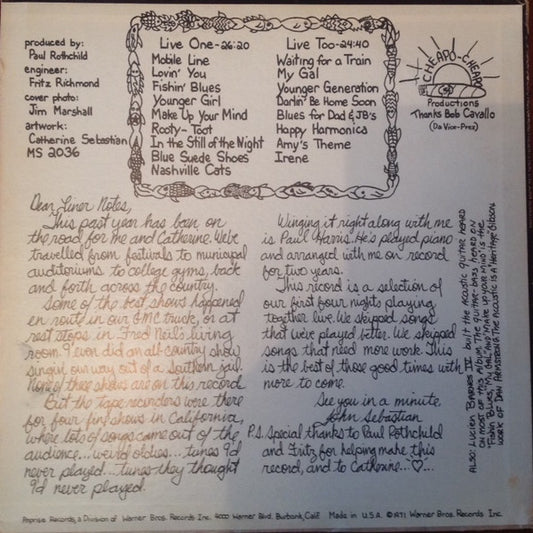 produced by:
Paul Rothchild
engineer:
Fritz Richmond
cover photo:
Jim Marshall
artwork:
Catherine Sebastian
MS 2036
Live One-26:20
Mobile Line
Lovin' You
Fishin' Blues
Younger Girl
Make Up Your Mind
Rooty-Toot
In the Still of the Night
Blue Suede Shoes
Nashville Cats
Live Too-24:40
Waiting for a Train
My Gal
Younger Generation
Darlin' Be Home Soon
Blues for Dad & JB's
Happy Harmonica
Amy's Theme
Irene
CHEAPO-CHEAPO
Productions
Thanks Bob Cavallo
(Da Vice-Prez)
Dear Liner Notes,
This past year has been on
the road for me and Catherine. We've
travelled from festivals to municipal
auditoriums to college gyms, back
and forth across the country.
Some of the best shows happened
en route in our GMC truck, or at
rest stops, in Fred Neil's living
room. I even did an all-country show,
singin' our way out of a Southern jail.
None of these shows are on this record.
But the tape recorders were there
for four fine shows in California,
where lots of songs came out of the
audience...weird oldies...tunes I'd
never played...tunes they thought
I'd never played.
Winging it right along with me
is Paul Harris. He's played piano
and arranged with me on record
for two years.
This record is a selection of
our first four nights playing
together live. We skipped songs
that we've played better. We skipped
songs that need more work. This
is the best of those good times with
more to come.
See you in a minute,
John Sebastian
P.S. Special thanks to Paul Rothchild
and Fritz for helping make this
record, and to Catherine...♡...
ALSO: Lucien Barnes IV. built the acoustic guitar heard
on most of this album. The guitar-bass heard on
"Fishin' Blues," "My Gal," and "Make Up Your Mind" is the
work of Dan Armstrong. The acoustic is a Heritage Gibson.
Reprise Records, a Division of Warner Bros. Records Inc. 4000 Warner Blvd. Burbank, Calif. Made in U.S.A. ©1971 Warner Bros. Records Inc.